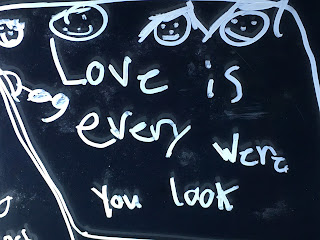 Love is
every were
you look